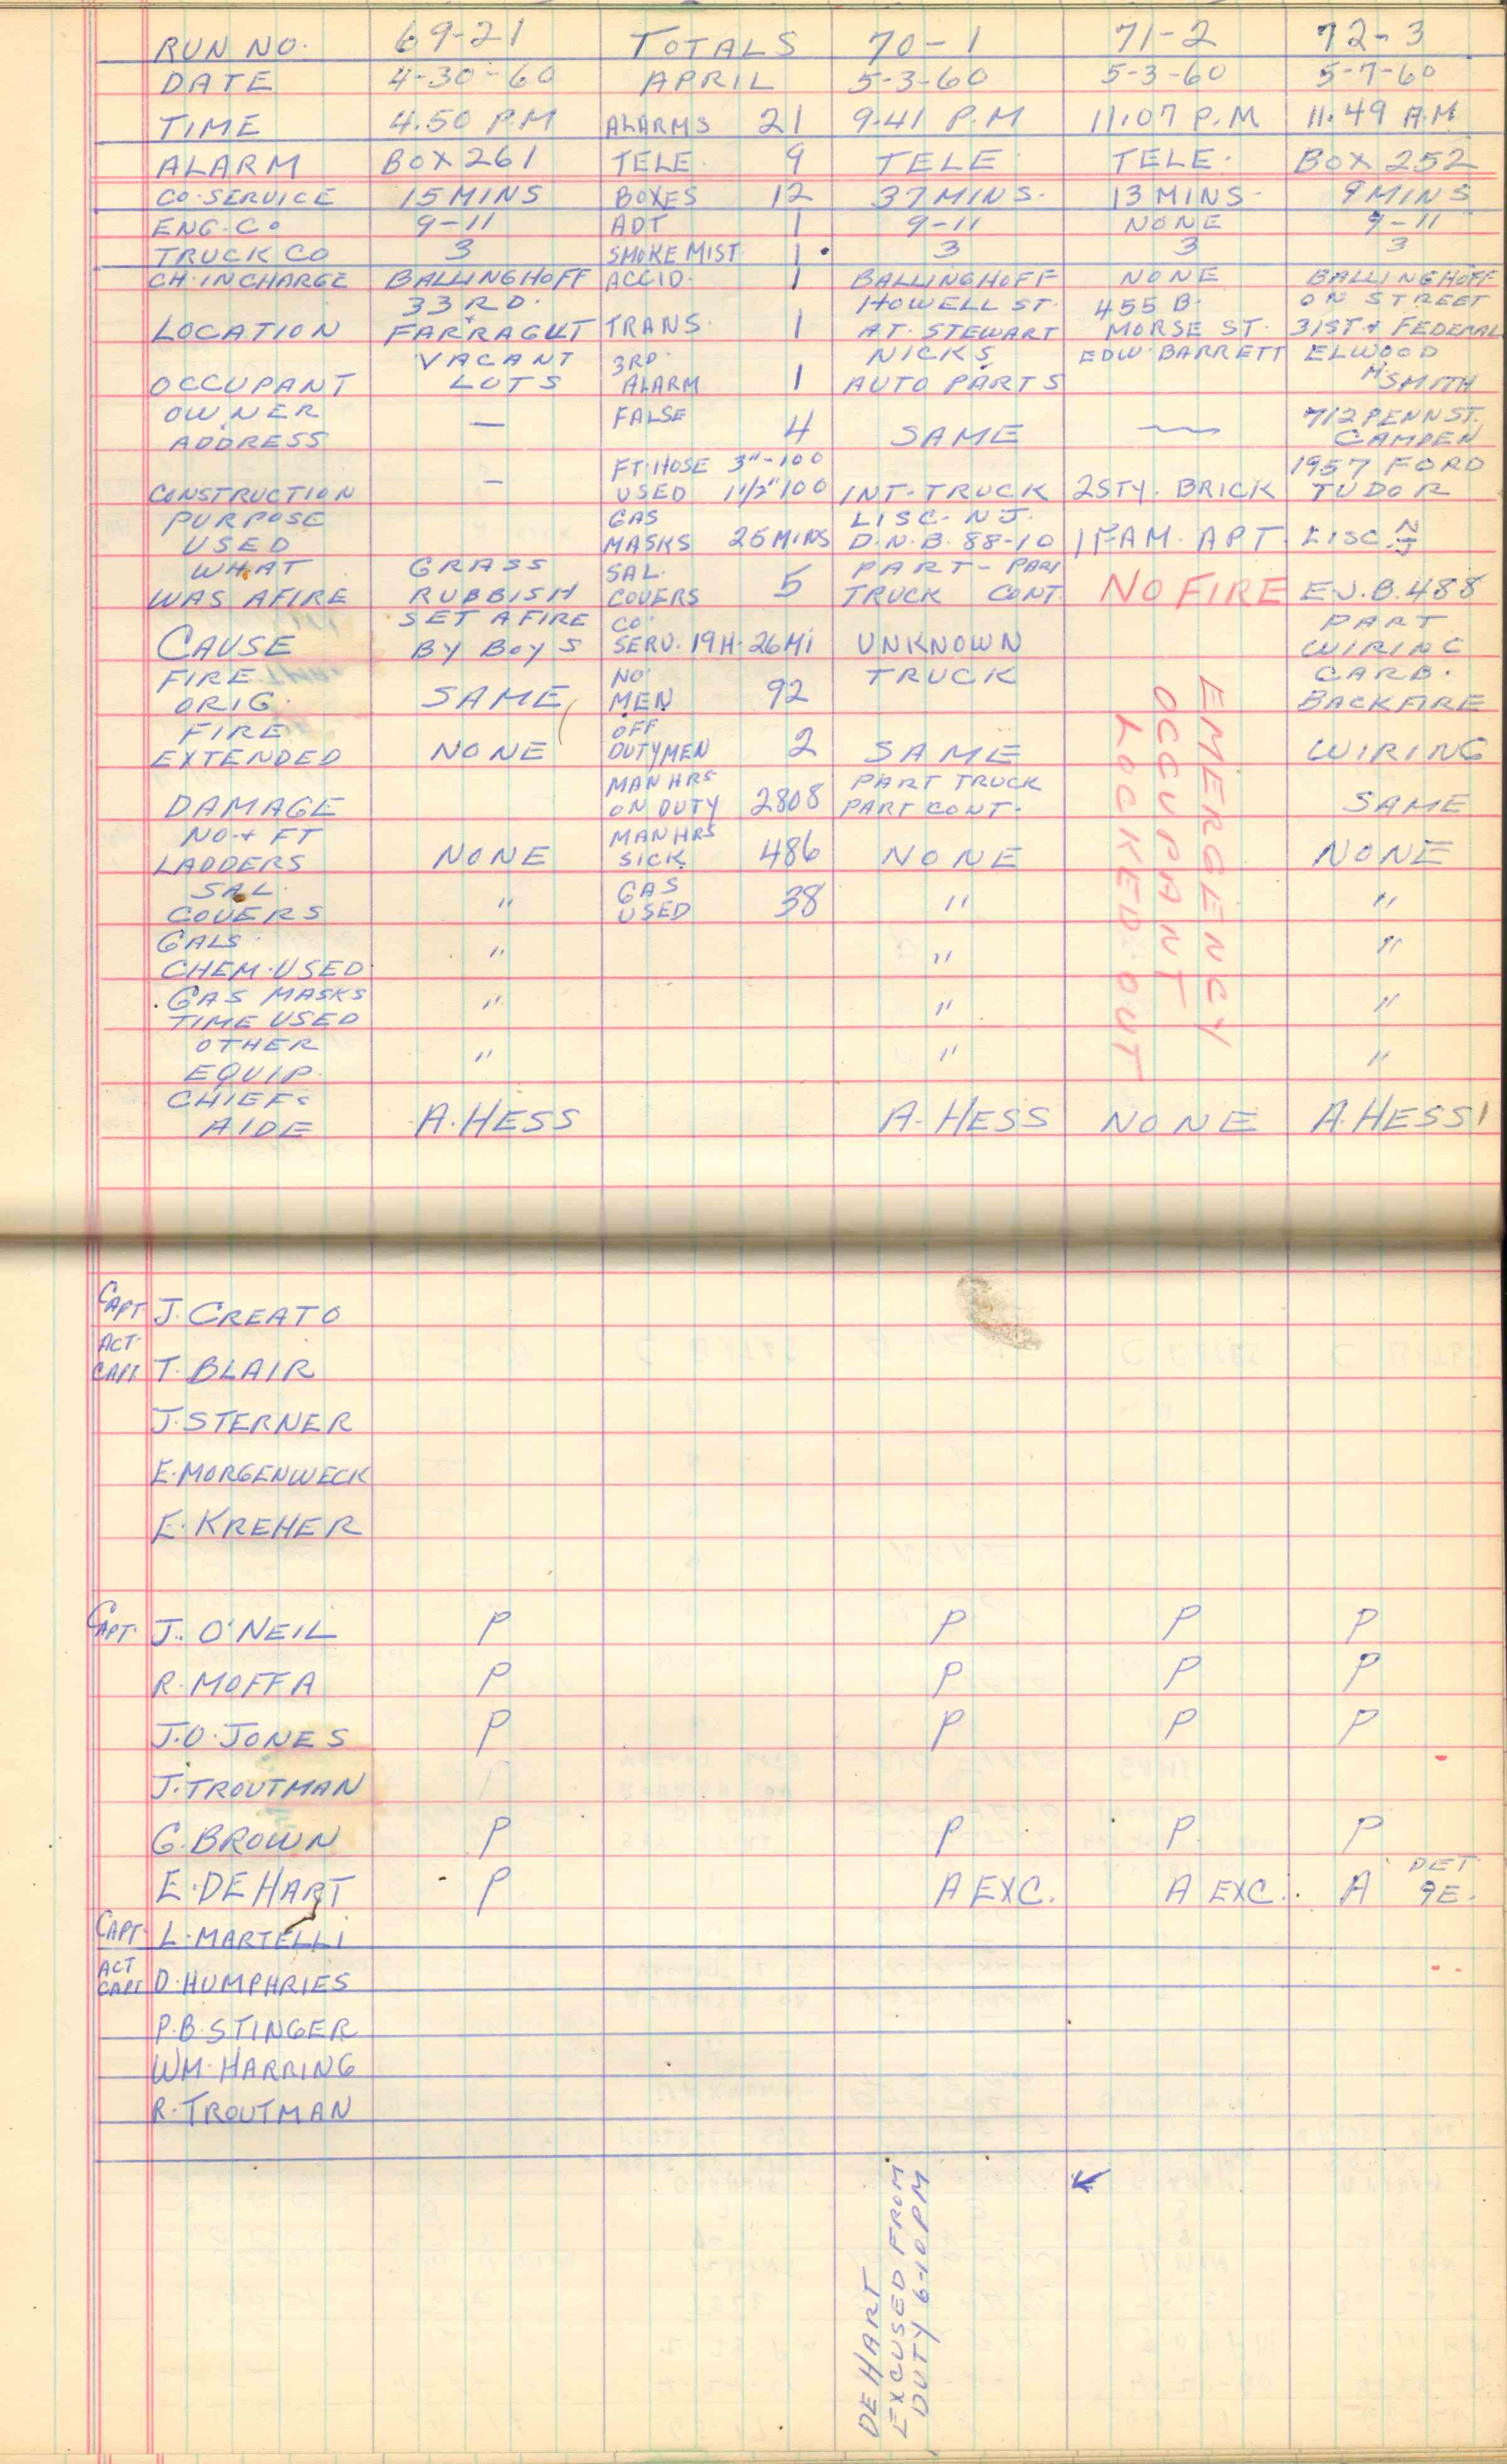 RUN NO. 69-21 TOTALS 70-1 71-2 72-3
DATE 4-30-60 APRIL 5-3-60 5-3-60 5-7-60
TIME 4.50 P.M ALARMS 21 9.41 P.M 11.07 P.M 11.49 A.M
ALARM BOX 261 TELE. 9 TELE. TELE. BOX 252
CO. SERVICE 15 MINS BOXES 12 37 MINS. 13 MINS. 9 MINS
ENG. CO 9-11 ADT 1 9-11 NONE 9-11
TRUCK CO 3 SMOKE MIST. 1. 3 3 3
CH. IN CHARGE BALLINGHOFF ACCID. 1 BALLINGHOFF NONE BALLINGHOFF
33RD. HOWELL ST. 455 B. ON STREET
LOCATION + FARRAGUT TRANS. 1 AT. STEWART MORSE ST. 31ST + FEDERAL
VACANT 3RD. NICKS EDW. BARRETT ELWOOD
OCCUPANT LOTS ALARM 1 AUTO PARTS M. SMITH
OWNER FALSE 712 PENN ST.
ADDRESS — 4 SAME — CAMDEN
FT. HOSE 3"-100 1957 FORD
CONSTRUCTION — USED 1 1/2" 100 INT. TRUCK 2 STY. BRICK TUDOR
PURPOSE GAS LISC. N.J.
USED MASKS 25 MINS D.N.B. 88-10 1 FAM. APT. LISC. NJ
WHAT GRASS SAL. PART - PART
WAS AFIRE RUBBISH COVERS 5 TRUCK CONT. NO FIRE E.J.B. 488
SET AFIRE CO. PART
CAUSE BY BOYS SERV. 19H. 26Mi UNKNOWN WIRING
FIRE NO. TRUCK CARB.
ORIG. SAME MEN 92 BACKFIRE
FIRE OFF
EXTENDED NONE DUTYMEN 2 SAME WIRING
MAN HRS PART TRUCK
DAMAGE ON DUTY 2808 PART CONT. SAME
NO. + FT MAN HRS
LADDERS NONE SICK 486 NONE NONE
SAL. GAS
COVERS " USED 38 " "
GALS.
CHEM. USED " " "
GAS MASKS
TIME USED " " "
OTHER
EQUIP. " " "
CHIEFS
AIDE A. HESS A. HESS NONE A. HESS
EMERGENCY
OCCUPANT
LOCKED OUT
CAPT. J. CREATO
ACT.
CAPT T. BLAIR
J. STERNER
E. MORGENWECK
E. KREHER
CAPT. J. O'NEIL P P P P
R. MOFFA P P P P
J.O. JONES P P P P
J. TROUTMAN
G. BROWN P P P P
E. DE HART P A EXC. A EXC. A DET. 9E.
CAPT. L. MARTELLI
ACT
CAPT D. HUMPHRIES
P.B. STINGER
WM. HARRING
R. TROUTMAN
DE HART
EXCUSED FROM
DUTY 6-10 PM